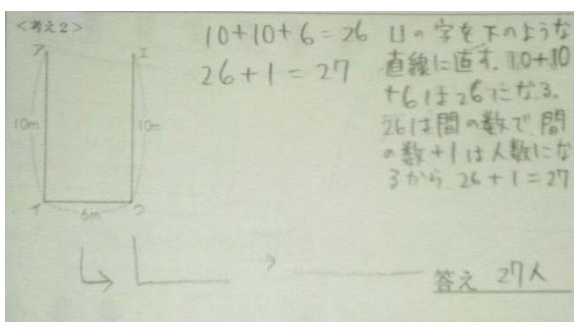 <考え2>
ア
エ
10m
10m
イ
ウ
6m
10+10+6=26
26+1=27
Uの字を下のような
直線に直す。10+10
+6は26になる。
26は間の数で、間
の数+1は人数にな
るから、26+1=27
答え 27人